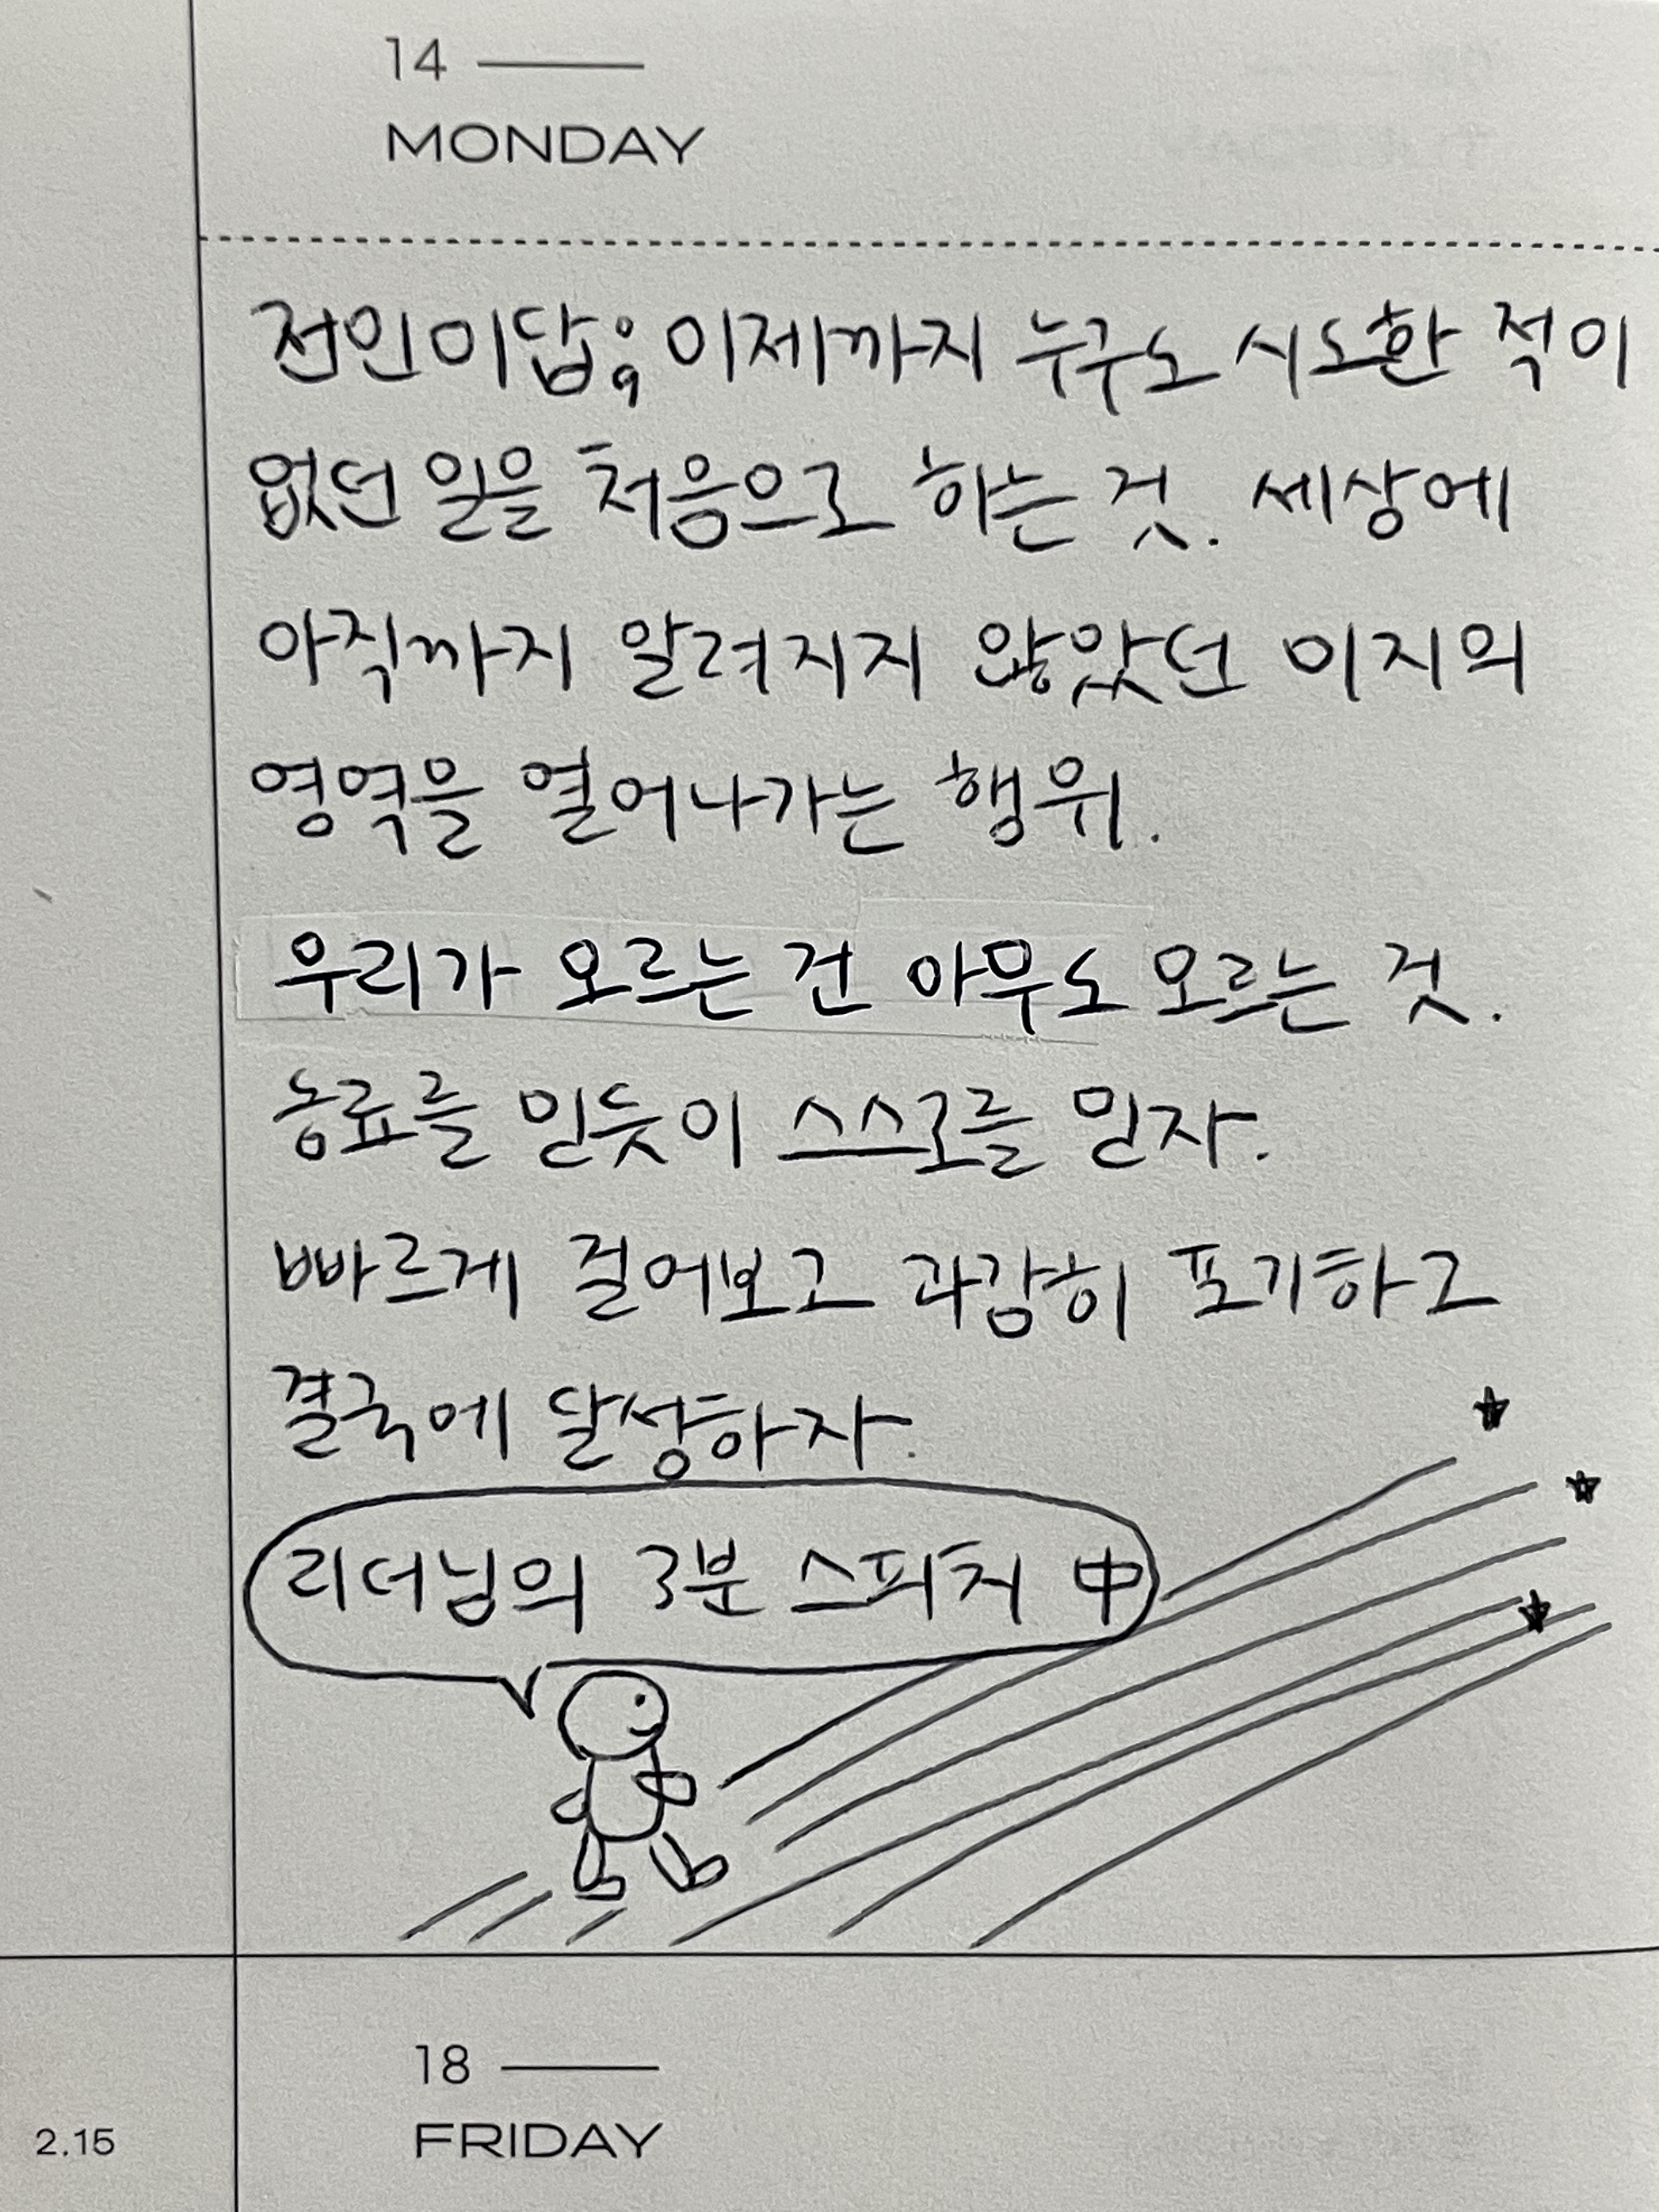 14
MONDAY
전인미답; 이제까지 누구도 시도한 적이
없던 일을 처음으로 하는 것. 세상에
아직까지 알려지지 않았던 미지의
영역을 열어나가는 행위.
우리가 모르는 건 아무도 모르는 것.
동료를 믿듯이 스스로를 믿자.
빠르게 걸어보고 과감히 포기하고
결국에 달성하자.
리더님의 3분 스피치 中
18
FRIDAY
2.15